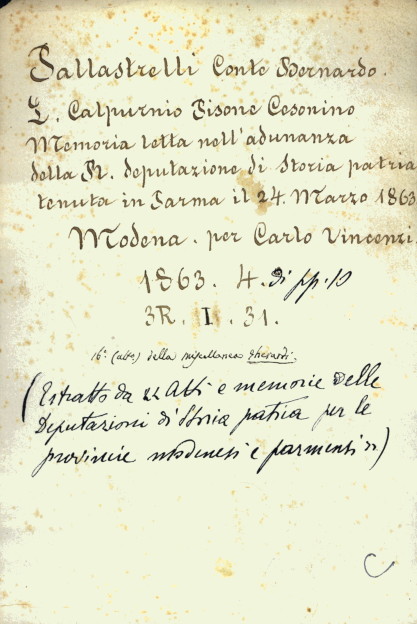 Pallastrelli Conte Bernardo.
L. Calpurnio Pisone Cesonino
Memoria letta nell'adunanza
della R. deputazione di Storia patria
tenuta in Parma il 24. Marzo 1863
Modena. per Carlo Vincenzi.
1863. 4. di pp. 10
3R. I. 31.
16º (alto) della miscellanea Gherardi.
(Estratto da "Atti e memorie delle
Deputazioni di Storia patria per le
provincie modenesi e parmensi")
C